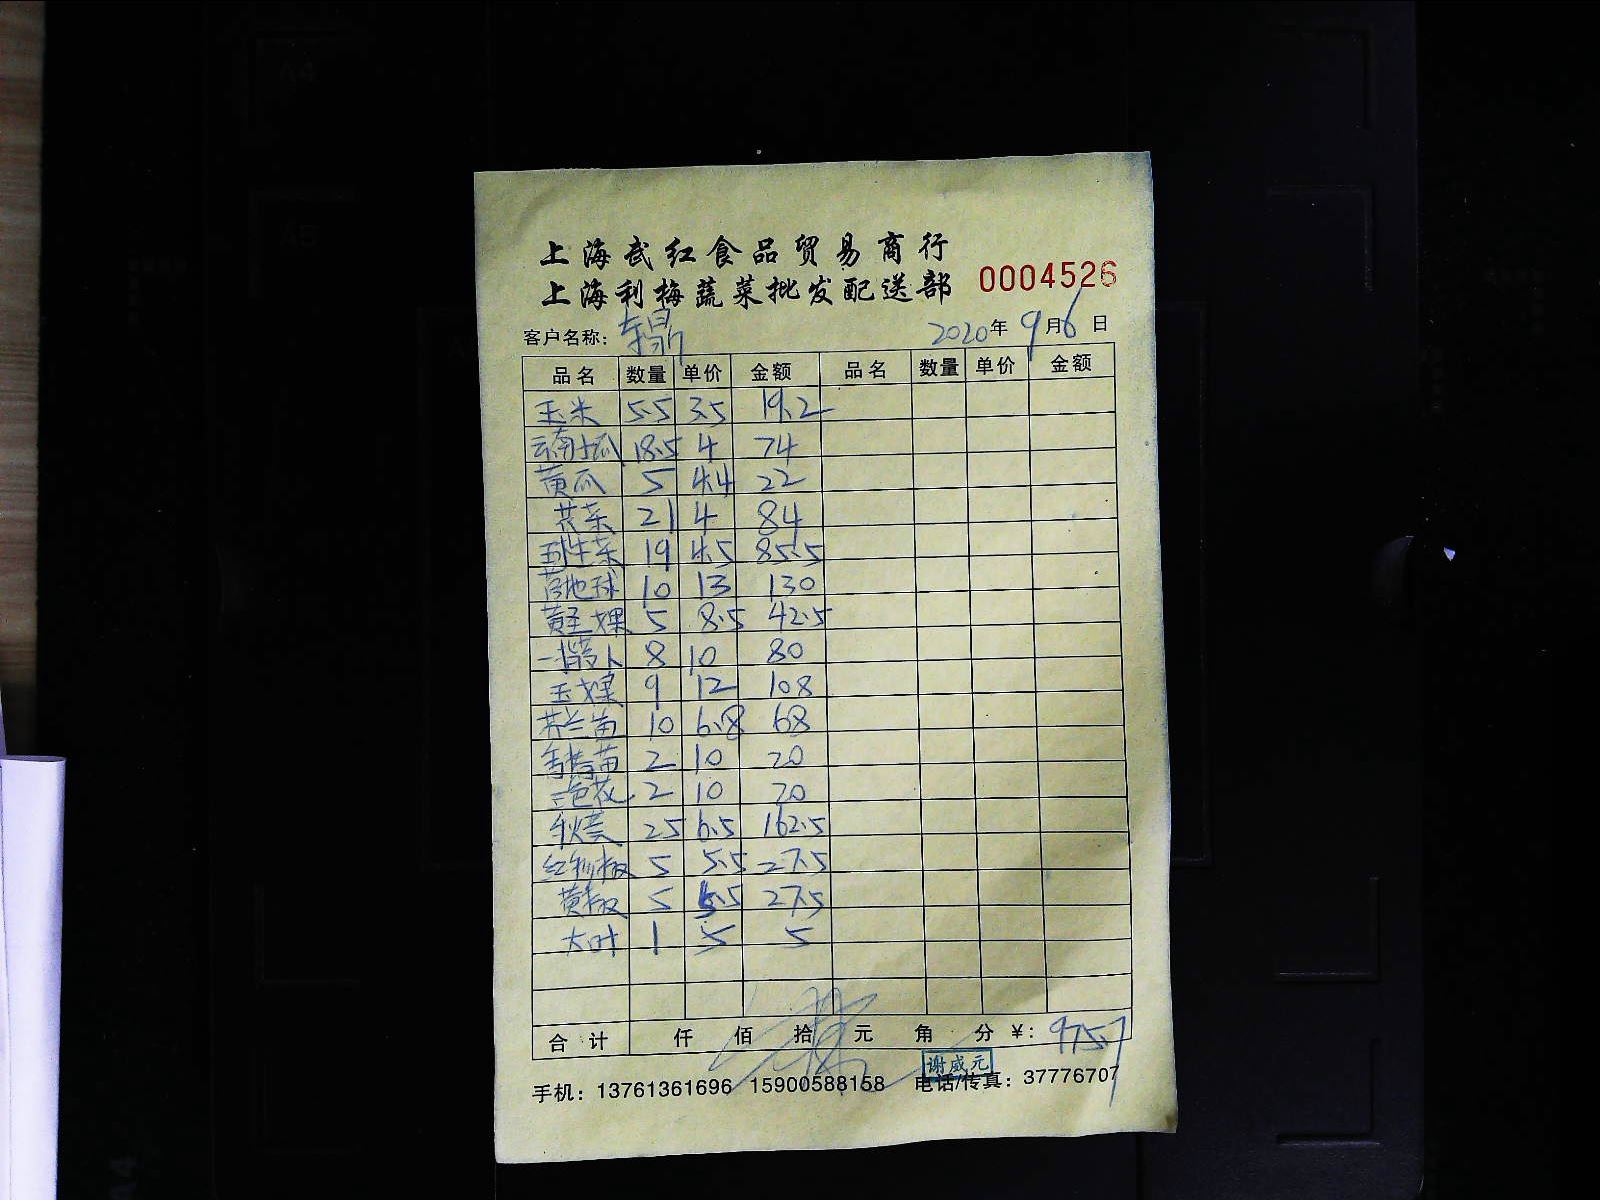 上海武红食品贸易商行
上海利梅蔬菜批发配送部 0004526
客户名称: 东鼎 2020年 9月6日
品名 数量 单价 金额 品名 数量 单价 金额
玉米 5.5 3.5 19.2
云南小瓜 18.5 4 74
黄瓜 5 4.4 22
花菜 21 4 84
生菜 19 4.5 85.5
10 13 130
黄圣果 5 8.5 42.5
8 10 80
玉 9 12 108
芥兰苗 10 6.8 68
苗 2 10 20
三色花 2 10 20
秋葵 25 6.5 162.5
红椒 5 5.5 27.5
黄椒 5 5.5 27.5
大叶 1 5 5
合计 仟 佰 拾 元 角 分 ¥: 975.7
谢威元
手机: 13761361696 15900588158 电话/传真: 37776707